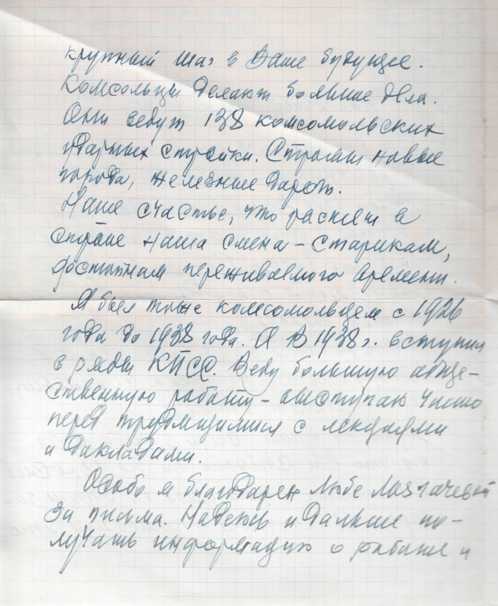 крупный шаг в Ваше будущее.
Комсольцы делают большие дела.
Они ведут 138 комсомольских
ударных стройки. Строят новые
города, железные дороги.
Наше счастье, что растет в
стране наша смена – старикам,
достойная переживаемого времени.
Я был тоже комсомольцем с 1926
года до 1938 года. А в 1938 г. вступил
в ряды КПСС. Веду большую обще-
ственную работу – выступаю часто
перед трудящимися с лекциями
и докладами.
Особо я благодарен Любе
за письма. Надеюсь и дальше по-
лучать информацию о работе и